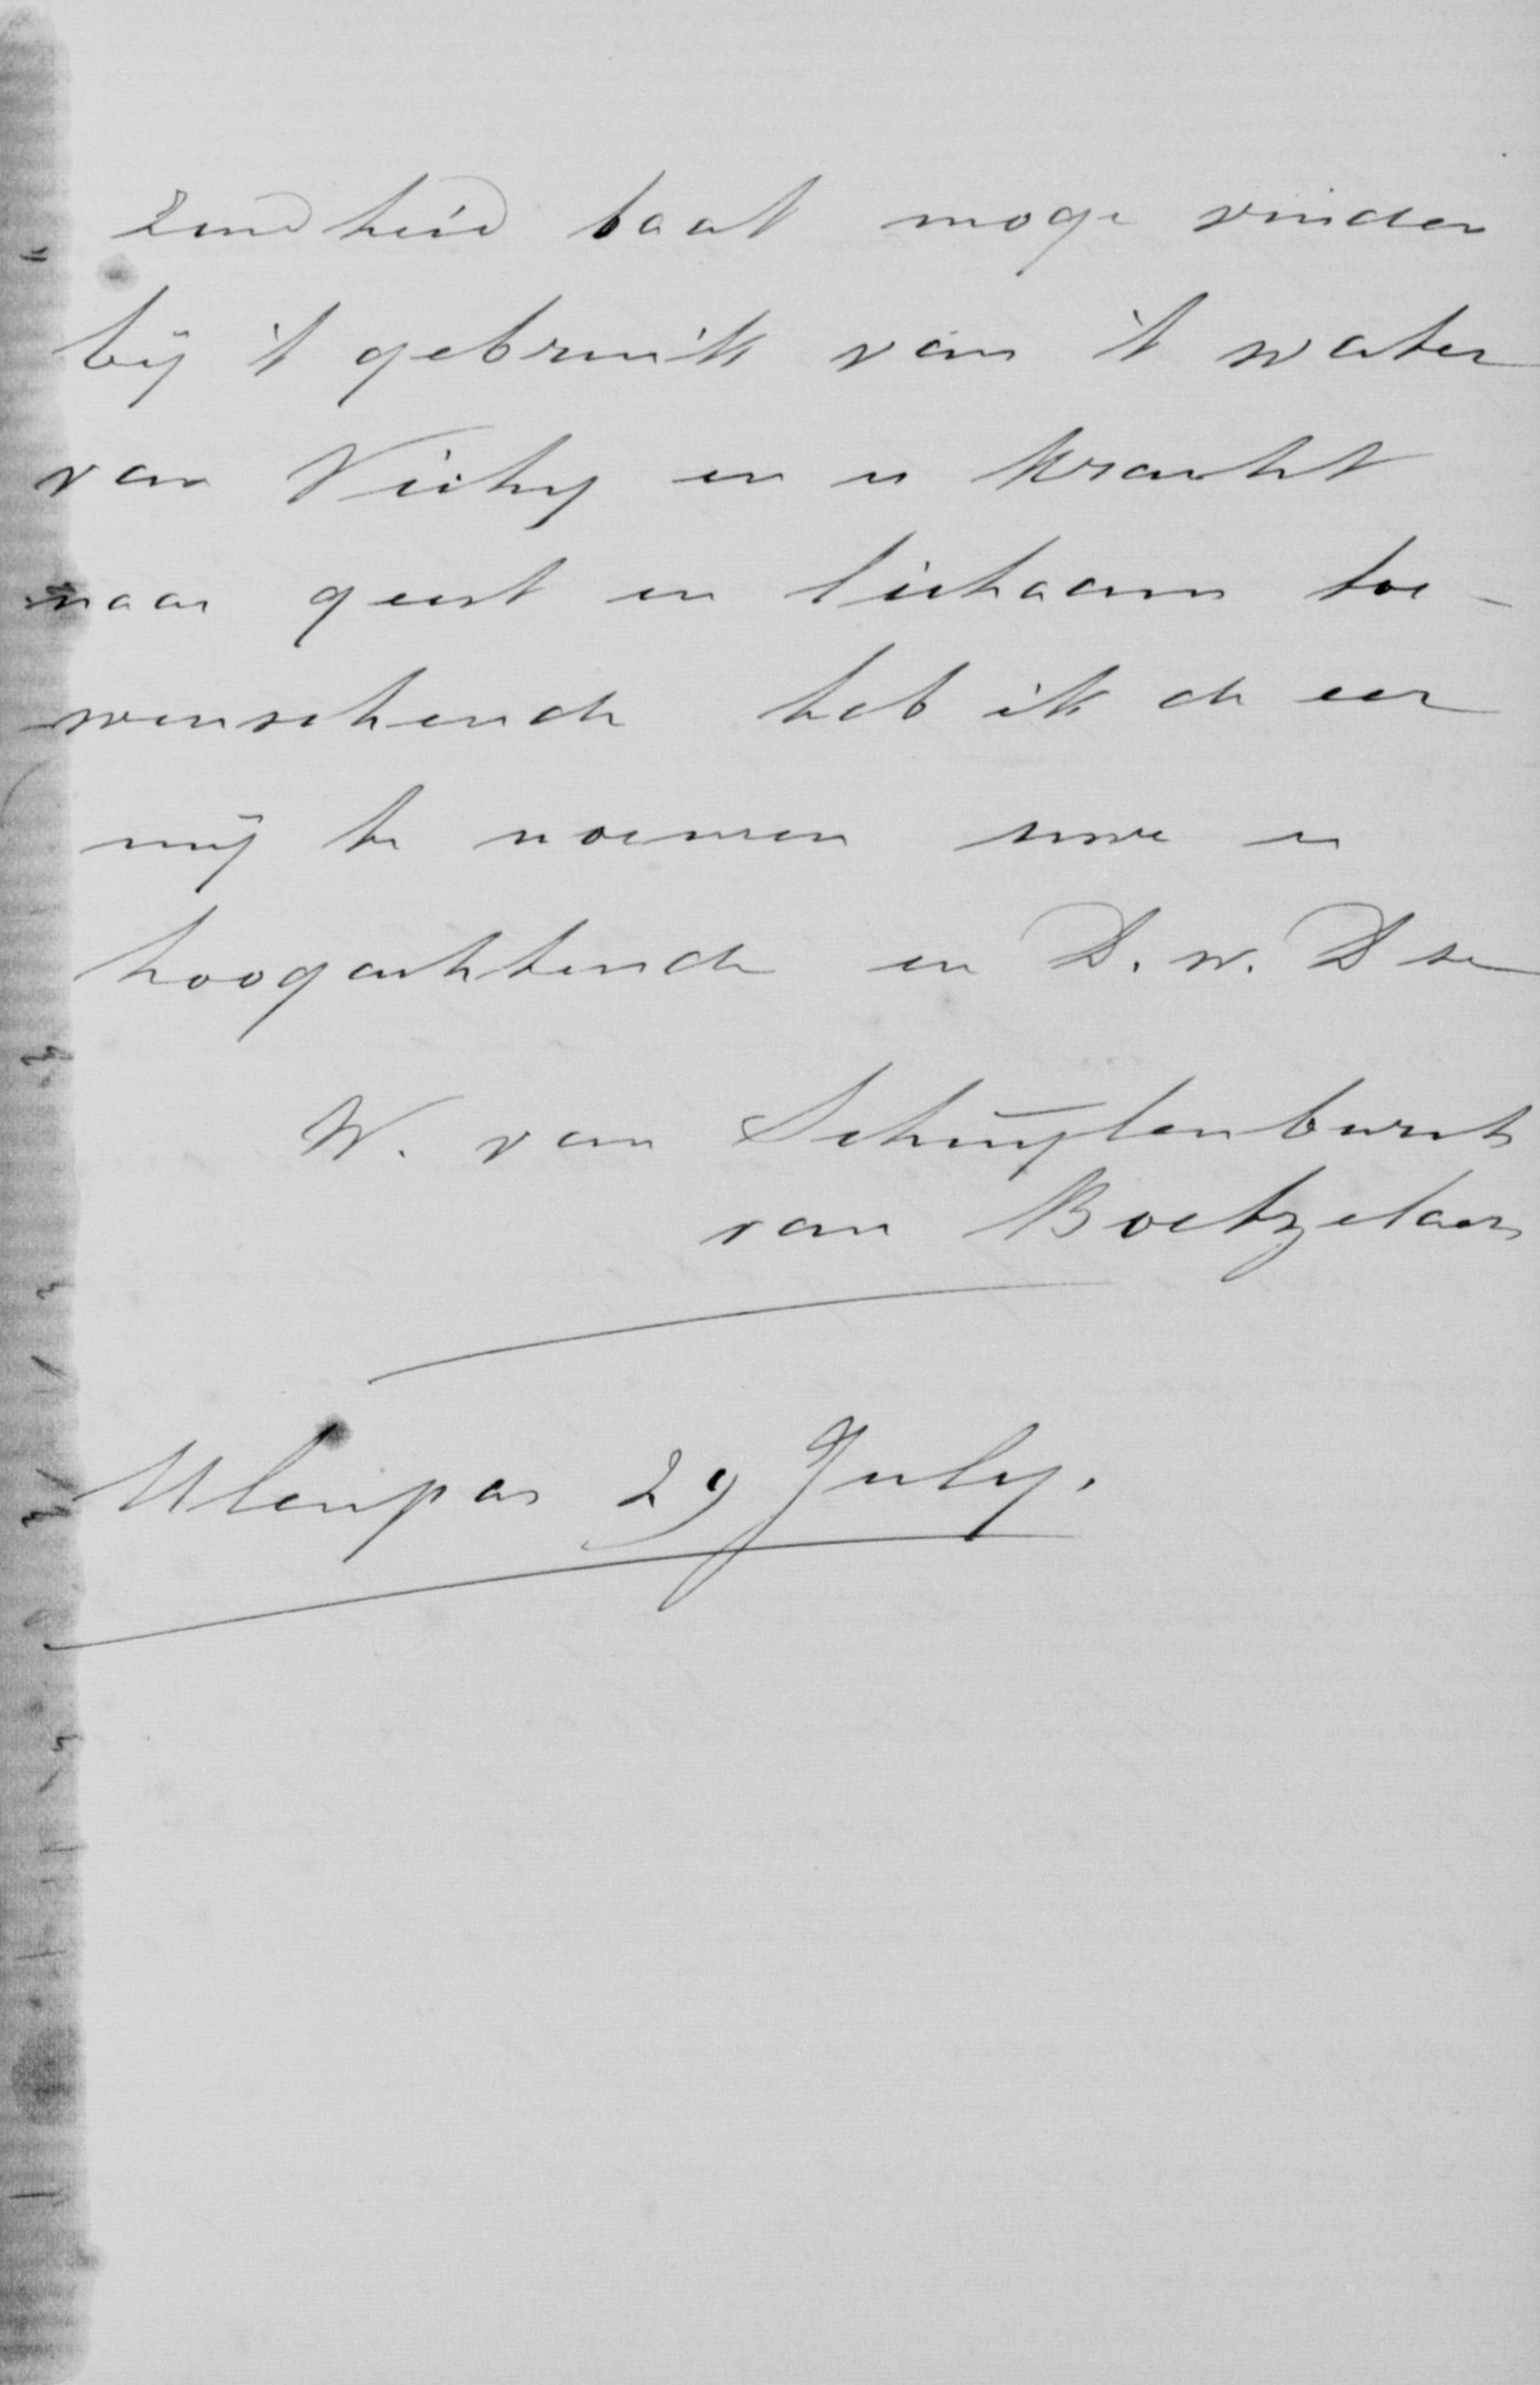 zondheid baat moge vinden
bij 't gebruik van 't water
van Vichy en u kracht
naar geest en lichaam toe-
wenschende heb ik de eer
mij te noemen uwe u
hoogachtende en D. w. Dse
W. van Schuylenburch
van Boetzelaer
Ulenpas 29 July.